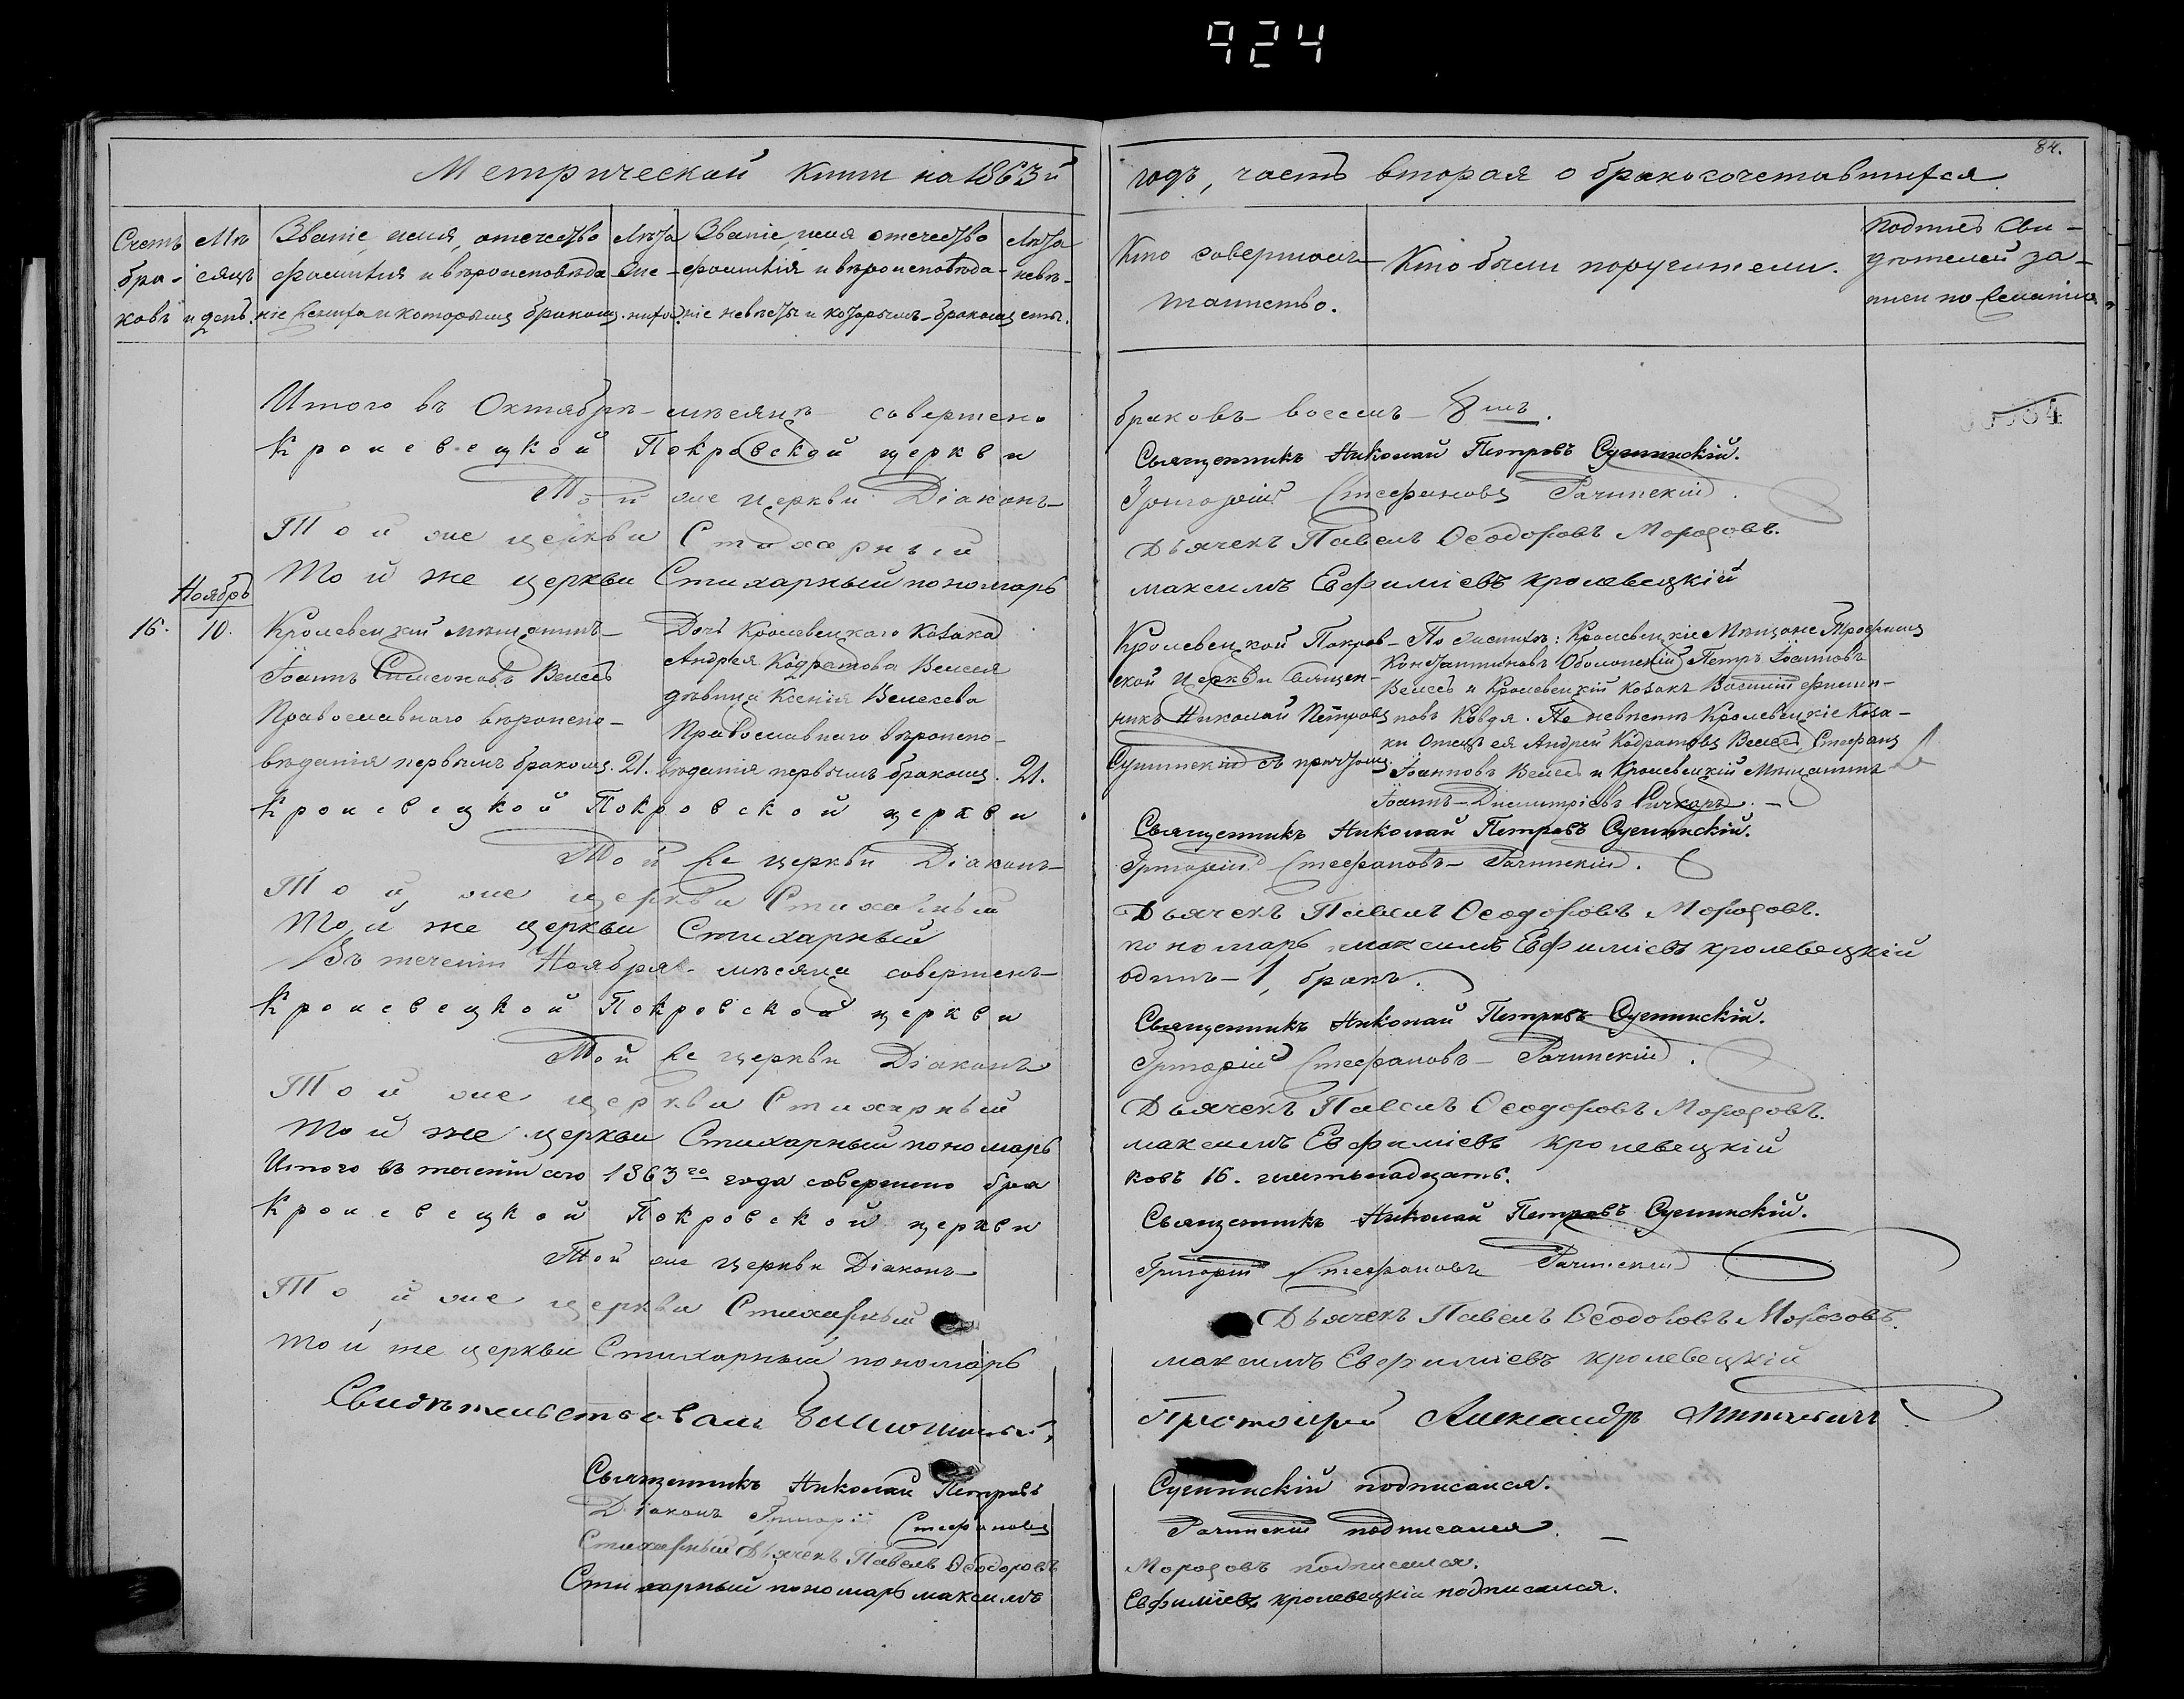 924
84.
Метрической книги на 1863й
годъ, часть вторая о бракосочетавшихся
Счетъ бра-ковъ
Мѣсяцъ и день.
Званіе, имя, отечество фамилія и вѣроисповѣданіе жениха и которымъ бракомъ.
Лѣта жениха.
Званіе, имя отечество фамилія и вѣроисповѣданіе невѣсты и которымъ бракомъ
Лѣта невѣсты.
Кто совершалъ таинство.
Кто были поручители.
подпись сви-дѣтелей за-писи по желанію
Итого въ Октябрѣ мѣсяцѣ совершено
браковъ восемь 8мь.
Кролевецкой Покровской церкви
Священникъ Николай Петровъ Сулимскій.
Той же церкви Діаконъ
Григорій Стефановъ Рачинскій.
Той же церкви Стихарный
Дьячекъ Павелъ Ѳеодоровъ Морозовъ.
Той же церкви Стихарный пономарь
максимъ Евфиміевъ кролевецкій
Ноябрь
16. 10.
Кролевецкій мѣщанинъ
Іоаннъ Симеоновъ Велесъ
Православнаго вѣроиспо-
вѣданія первымъ бракомъ. 21.
Дочь Кролевецкаго козака
Андрея Кодратова Велеся
дѣвица Ксенія Велесева
Православнаго вѣроиспо-
вѣданія первымъ бракомъ. 21.
Кролевецкой Покров-
ской церкви Священ-
никъ Николай Петровъ
Сулимскій съ причтомъ.
По женихѣ: Кролевецкіе Мѣщане Трофимъ
Константиновъ Оболонскій Петръ Іоанновъ
Велесъ и Кролевецкій козакъ Василій Филип-
повъ Ковдя. По невѣстѣ Кролевецкіе Коза-
ки Отецъ ея Андрей Кодратовъ Велесъ, Стефанъ
Іоанновъ Велесъ и Кролевецкій Мѣщанинъ
Іоаннъ Димитріевъ Ричкарь.
Кролевецкой Покровской церкви
Священникъ Николай Петровъ Сулимскій.
Той же церкви Діаконъ
Григорій Стефановъ Рачинскій.
Той же церкви Стихарный
Дьячекъ Павелъ Ѳеодоровъ Морозовъ.
Той же церкви Стихарный
пономарь максимъ Евфиміевъ кролевецкій
Въ теченіи Ноября мѣсяца совершенъ
одинъ 1, бракъ.
Кролевецкой Покровской церкви
Священникъ Николай Петровъ Сулимскій.
Той же церкви Діаконъ
Григорій Стефановъ Рачинскій.
Той же церкви Стихарный
Дьячекъ Павелъ Ѳеодоровъ Морозовъ.
Той же церкви Стихарный пономарь
максимъ Евфиміевъ кролевецкій
Итого въ теченіи сего 1863го года совершено бра
ковъ 16. шестьнадцать.
Кролевецкой Покровской церкви
Священникъ Николай Петровъ Сулимскій.
Той же церкви Діаконъ
Григорій Стефановъ Рачинскій
Той же церкви Стихарный
Дьячекъ Павелъ Ѳеодоровъ Морозовъ.
Той же церкви Стихарный пономарь
максимъ Евфиміевъ кролевецкій
Свидѣтельствовалъ
Протоіерей Александръ
Священникъ Николай Петровъ
Сулимскій подписался.
Діаконъ Григорій Стефановъ
Рачинскій подписался.
Стихарный Дьячекъ Павелъ Ѳеодоровъ
Морозовъ подписался.
Стихарный пономарь максимъ
Евфиміевъ кролевецкій подписался.